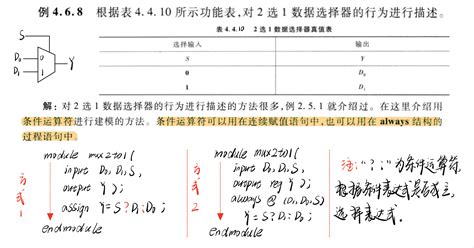 例 4.6.8 根据表 4.4.10 所示功能表，对 2 选 1 数据选择器的行为进行描述。
S
D₀
D₁
Y
表 4.4.10 2 选 1 数据选择器真值表
选择输入 输出
S Y
0 D₀
1 D₁
解：对 2 选 1 数据选择器的行为进行描述的方法很多，例 2.5.1 就介绍过。在这里介绍用
条件运算符进行建模的方法。条件运算符可以用在连续赋值语句中，也可以用在 always 结构的
过程语句中。
方式1
module mux2to1(
input D₀,D₁,S,
output Y );
assign Y = S?D₁:D₀;
endmodule
方式2
module mux2to1(
input D₀,D₁,S,
output reg Y );
always @ (D₀,D₁,S)
Y = S?D₁:D₀;
endmodule
注："?:"为条件运算符，
根据条件表达式是否成立，
选择表达式.